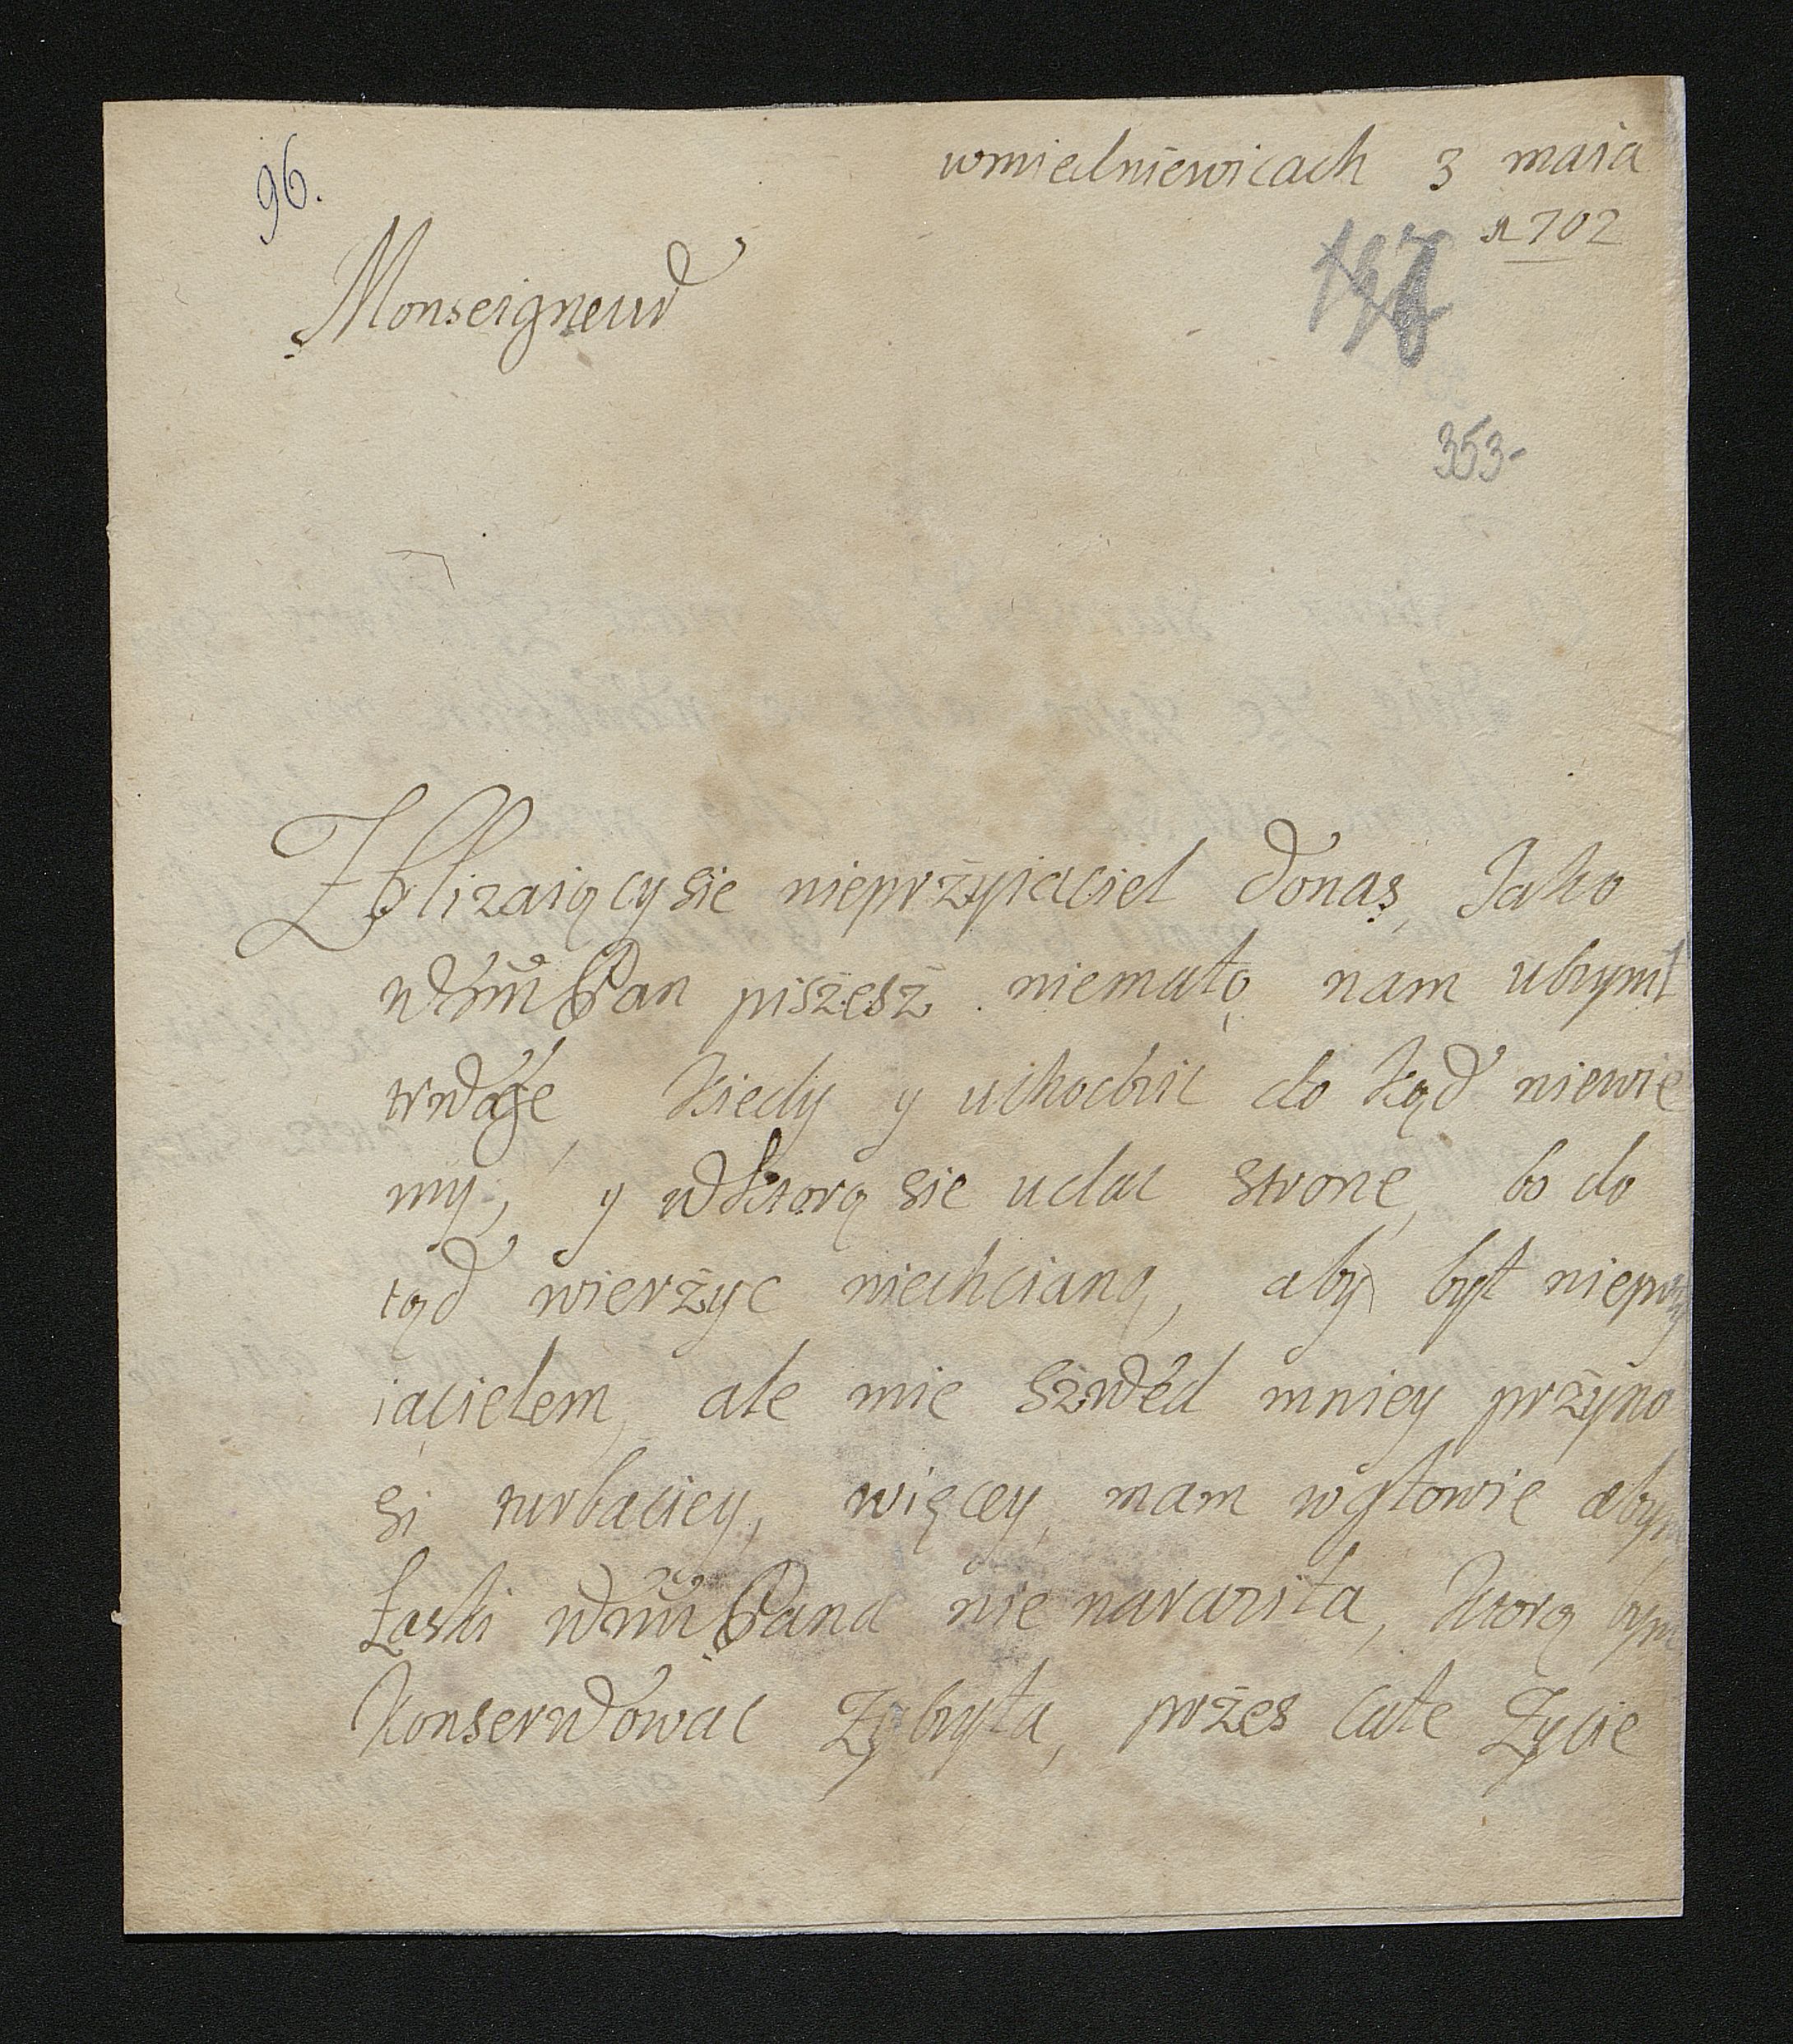 96.
wmiedniewicach 3 maia
1702
Monseigneur
353-
Zblizaiący sie nieprzyiaciel donas, Jako
Pan piszesz niemałą nam
Kiedy y uchodzic do kąd niewie
my, y wktorą sie udac strone, bo do
tąd wierzyc niechciano, aby był nieprzy
iacielem, ale mie Szwed mniey przyno
si turbaciey, więcey mam wgłowie abym
Łaski Pana nie naraziła, ktorą bym
Konserwowac Zyczyła, przes całe Zycie